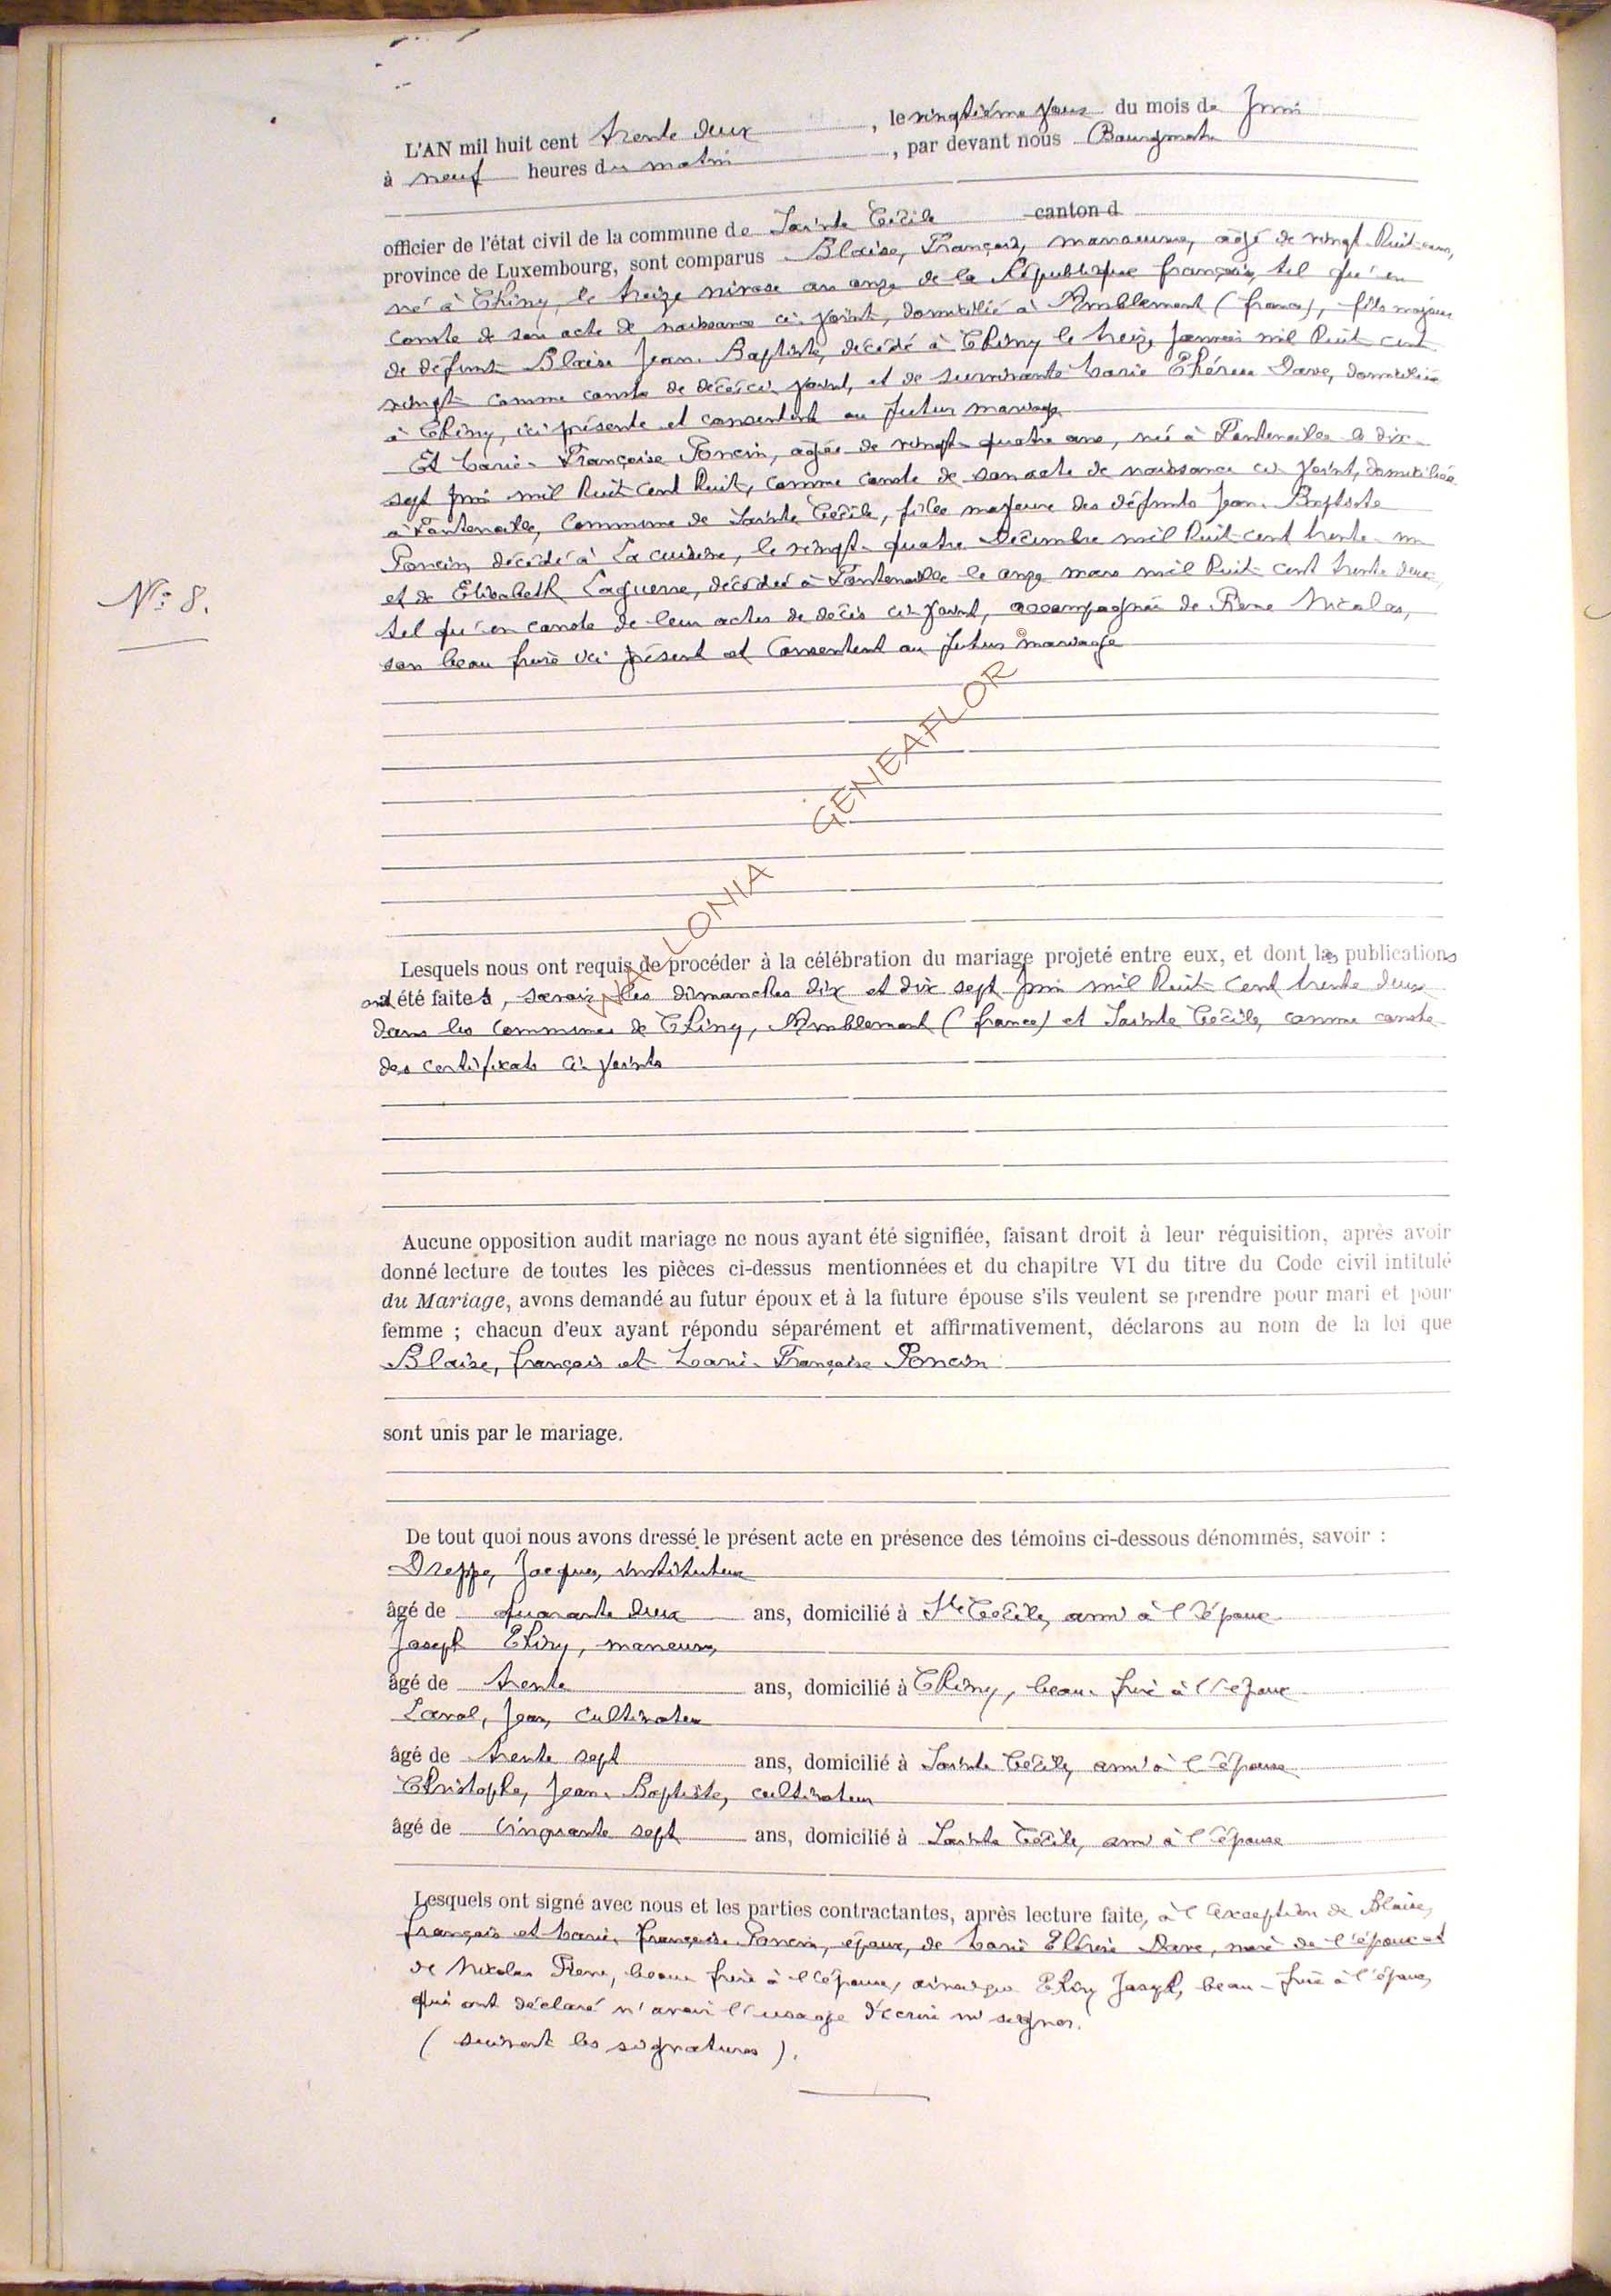 L'AN mil huit cent trente deux, le vingtième jour du mois de Juin
à neuf heures du matin, par devant nous Bourgmestre
officier de l'état civil de la commune de Sainte Cécile canton d
province de Luxembourg, sont comparus Blaise, François, manoeuvre, agé de vingt-huit ans,
né à Chiny, le treize nivose an onze de la République française, tel qu'en
conste de son acte de naissance ci-joint, domicilié à Amblemont (france), fils majeur
de défunt Blaise Jean-Baptiste, décédé à Chiny le treize Janvier mil huit cent
vingt comme conste de décès ci-joint, et de survivante Marie Thérèse Dave, domiciliée
à Chiny, ici présente et consentent au futur mariage
Et Marie-Françoise Poncin, agée de vingt-quatre ans, née à Fontenoille le dix-
sept juin mil huit cent huit, comme conste de son acte de naissance ci-joint, domiciliée
à Fontenoille, commune de Sainte Cécile, fille majeure des défunts Jean-Baptiste
Poncin, décédé à La cuisine, le vingt-quatre Décembre mil huit cent trente-un
et de Elisabeth Laguerre, décédée à Fontenoille le onze mars mil huit cent trente deux,
tel qu'en conste de leur actes de décès ci-joint, accompagnée de Pierre Nicolas,
son beau frère ici présent et consentent au futur mariage
N° 8.
WALLONIA GENEAFLOR
Lesquels nous ont requis de procéder à la célébration du mariage projeté entre eux, et dont les publications
ont été faites, savoir les dimanches dix et dix sept juin mil huit cent trente deux
dans les communes de Chiny, Amblemont (france) et Sainte Cécile, comme conste
des certificats ci-joints
Aucune opposition audit mariage ne nous ayant été signifiée, faisant droit à leur réquisition, après avoir
donné lecture de toutes les pièces ci-dessus mentionnées et du chapitre VI du titre du Code civil intitulé
du Mariage, avons demandé au futur époux et à la future épouse s'ils veulent se prendre pour mari et pour
femme ; chacun d'eux ayant répondu séparément et affirmativement, déclarons au nom de la loi que
Blaise, françois et Marie-Françoise Poncin
sont unis par le mariage.
De tout quoi nous avons dressé le présent acte en présence des témoins ci-dessous dénommés, savoir :
Dreppe, Jacques, instituteur
âgé de quarante deux ans, domicilié à Ste Cécile, ami à l'époux
Joseph Thiry, maneuvre,
âgé de trente ans, domicilié à Chiny, beau-frère à l'époux
Laval, Jean, cultivateur
âgé de trente sept ans, domicilié à Sainte Cécile, ami à l'épouse
Christophe, Jean-Baptiste, cultivateur
âgé de cinquante sept ans, domicilié à Sainte Cécile, ami à l'épouse
Lesquels ont signé avec nous et les parties contractantes, après lecture faite, à l'exception de Blaise,
françois et Marie-françoise Poncin, époux, de Marie Thérèse Dave, mère de l'époux et
de Nicolas Pierre, beau-frère à l'épouse, ainsi que Thiry Joseph, beau-frère à l'époux,
qui ont déclaré n'avoir l'usage d'écrire ni signer.
( suivent les signatures ).